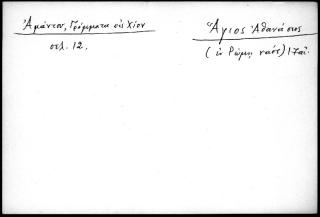 Ἀμάντου, Γράμματα εἰς Χίον
σελ. 12.
Ἅγιος Ἀθανάσιος
(ἐν Ῥώμῃ ναός) 17αἰ.